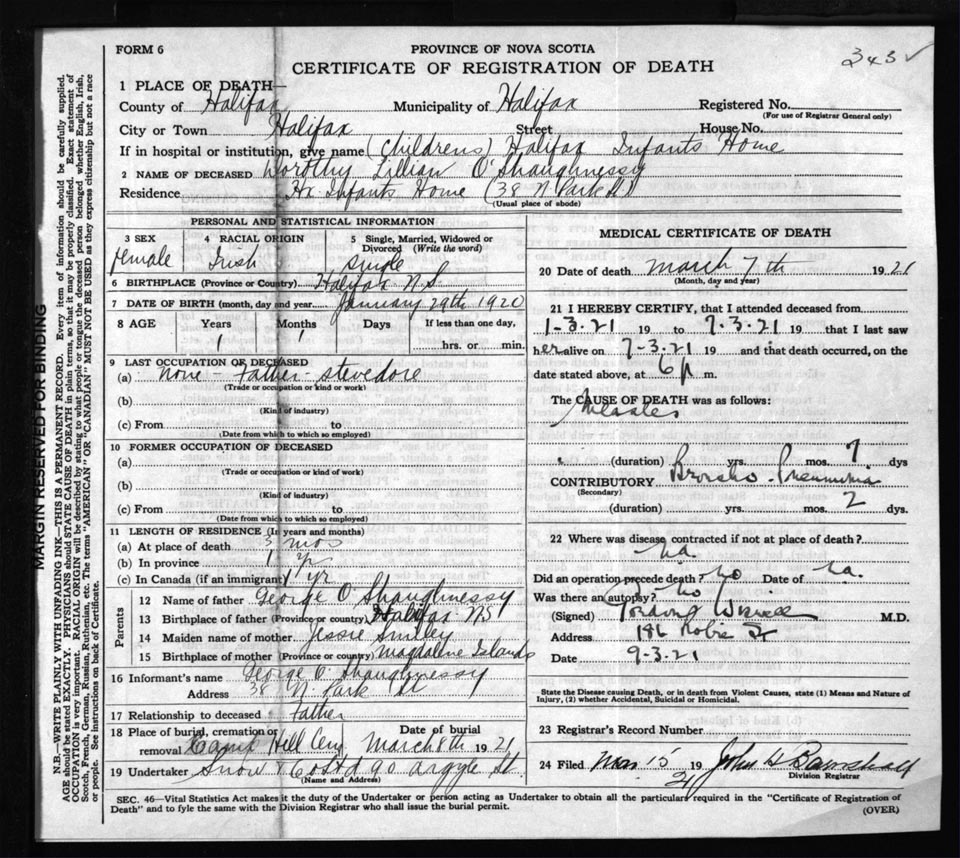 FORM 6
PROVINCE OF NOVA SCOTIA
CERTIFICATE OF REGISTRATION OF DEATH
343 ✓
1 PLACE OF DEATH—
County of Halifax Municipality of Halifax Registered No.
(For use of Registrar General only)
City or Town Halifax Street House No.
If in hospital or institution, give name (Childrens) Halifax Infants Home
2 NAME OF DECEASED Dorothy Lillian O'Shaughnessy
Residence Hx. Infants Home (38 N. Park St)
(Usual place of abode)
PERSONAL AND STATISTICAL INFORMATION
3 SEX 4 RACIAL ORIGIN 5 Single, Married, Widowed or Divorced (Write the word)
Female Irish Single
6 BIRTHPLACE (Province or Country) Halifax N.S.
7 DATE OF BIRTH (month, day and year) January 29th 1920
8 AGE Years Months Days If less than one day,
1 1 hrs. or min.
9 LAST OCCUPATION OF DECEASED
(a) none - Father - stevedore
(Trade or occupation or kind of work)
(b)
(Kind of industry)
(c) From to
(Date from which to which so employed)
10 FORMER OCCUPATION OF DECEASED
(a)
(Trade or occupation or kind of work)
(b)
(Kind of industry)
(c) From to
(Date from which to which so employed)
11 LENGTH OF RESIDENCE (In years and months)
(a) At place of death 3 mos
(b) In province 1 yr
(c) In Canada (if an immigrant) 1 yr
Parents
12 Name of father George O'Shaughnessy
13 Birthplace of father (Province or country) Halifax NS
14 Maiden name of mother Jessie Smiley
15 Birthplace of mother (Province or country) Magdalene Islands
16 Informant's name George O'Shaughnessy
Address 38 N. Park St
17 Relationship to deceased Father
18 Place of burial, cremation or removal Date of burial
Camp Hill Cem March 8th 1921
19 Undertaker Snow & Co Ltd 90 Argyle St.
(Name and Address)
MEDICAL CERTIFICATE OF DEATH
20 Date of death March 7th 1921
(Month, day and year)
21 I HEREBY CERTIFY, that I attended deceased from
1-3-21 19 to 7-3-21 19 that I last saw
her alive on 7-3-21 19 and that death occurred, on the
date stated above, at 6 p m.
The CAUSE OF DEATH was as follows:
Measles
(duration) yrs. mos. 7 dys
CONTRIBUTORY Broncho-Pneumonia
(Secondary)
(duration) yrs. mos. 2 dys.
22 Where was disease contracted if not at place of death?
na.
Did an operation precede death? no Date of na.
Was there an autopsy? no
(Signed) M.D.
Address 186 Robie St
Date 9-3-21
State the Disease causing Death, or in death from Violent Causes, state (1) Means and Nature of
Injury, (2) whether Accidental, Suicidal or Homicidal.
23 Registrar's Record Number
24 Filed Mar 15 19 21 John H Barnstead
Division Registrar
SEC. 46—Vital Statistics Act makes it the duty of the Undertaker or person acting as Undertaker to obtain all the particulars required in the "Certificate of Registration of
Death" and to fyle the same with the Division Registrar who shall issue the burial permit.
(OVER)
MARGIN RESERVED FOR BINDING
N.B.—WRITE PLAINLY WITH UNFADING INK—THIS IS A PERMANENT RECORD. Every item of information should be carefully supplied.
AGE should be stated EXACTLY. PHYSICIANS should STATE CAUSE OF DEATH in plain terms, so that it may be properly classified. Exact statement of
OCCUPATION is very important. RACIAL ORIGIN will be described by stating to what people or tongue the deceased person belonged whether English, Irish,
Scotch, French, German, Russian, Ruthenian, etc. The terms "AMERICAN" or "CANADIAN" MUST NOT BE USED as they express citizenship but not a race
or people. See instructions on back of Certificate.